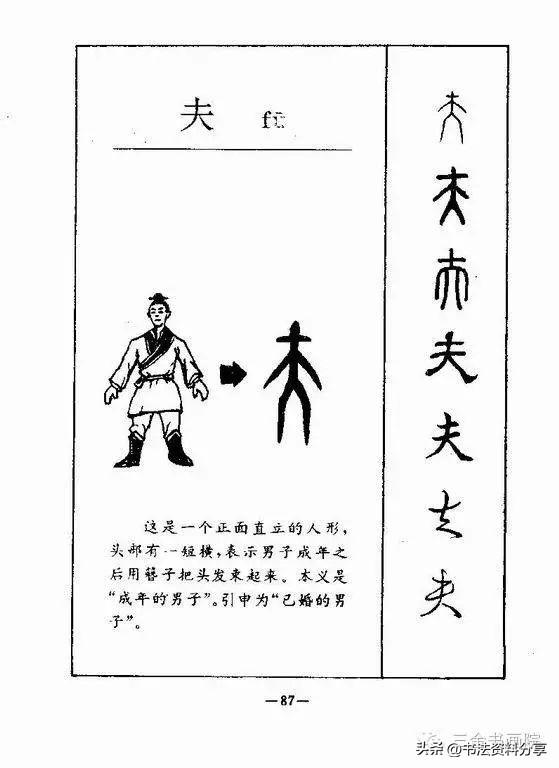 夫 fū
这是一个正面直立的人形，
头部有一短横，表示男子成年之
后用簪子把头发束起来。本义是
“成年的男子”。引申为“已婚的男
子”。
夫
夫
夫
夫
夫
夫
夫
—87—
三余书画院
头条 @书法资料分享